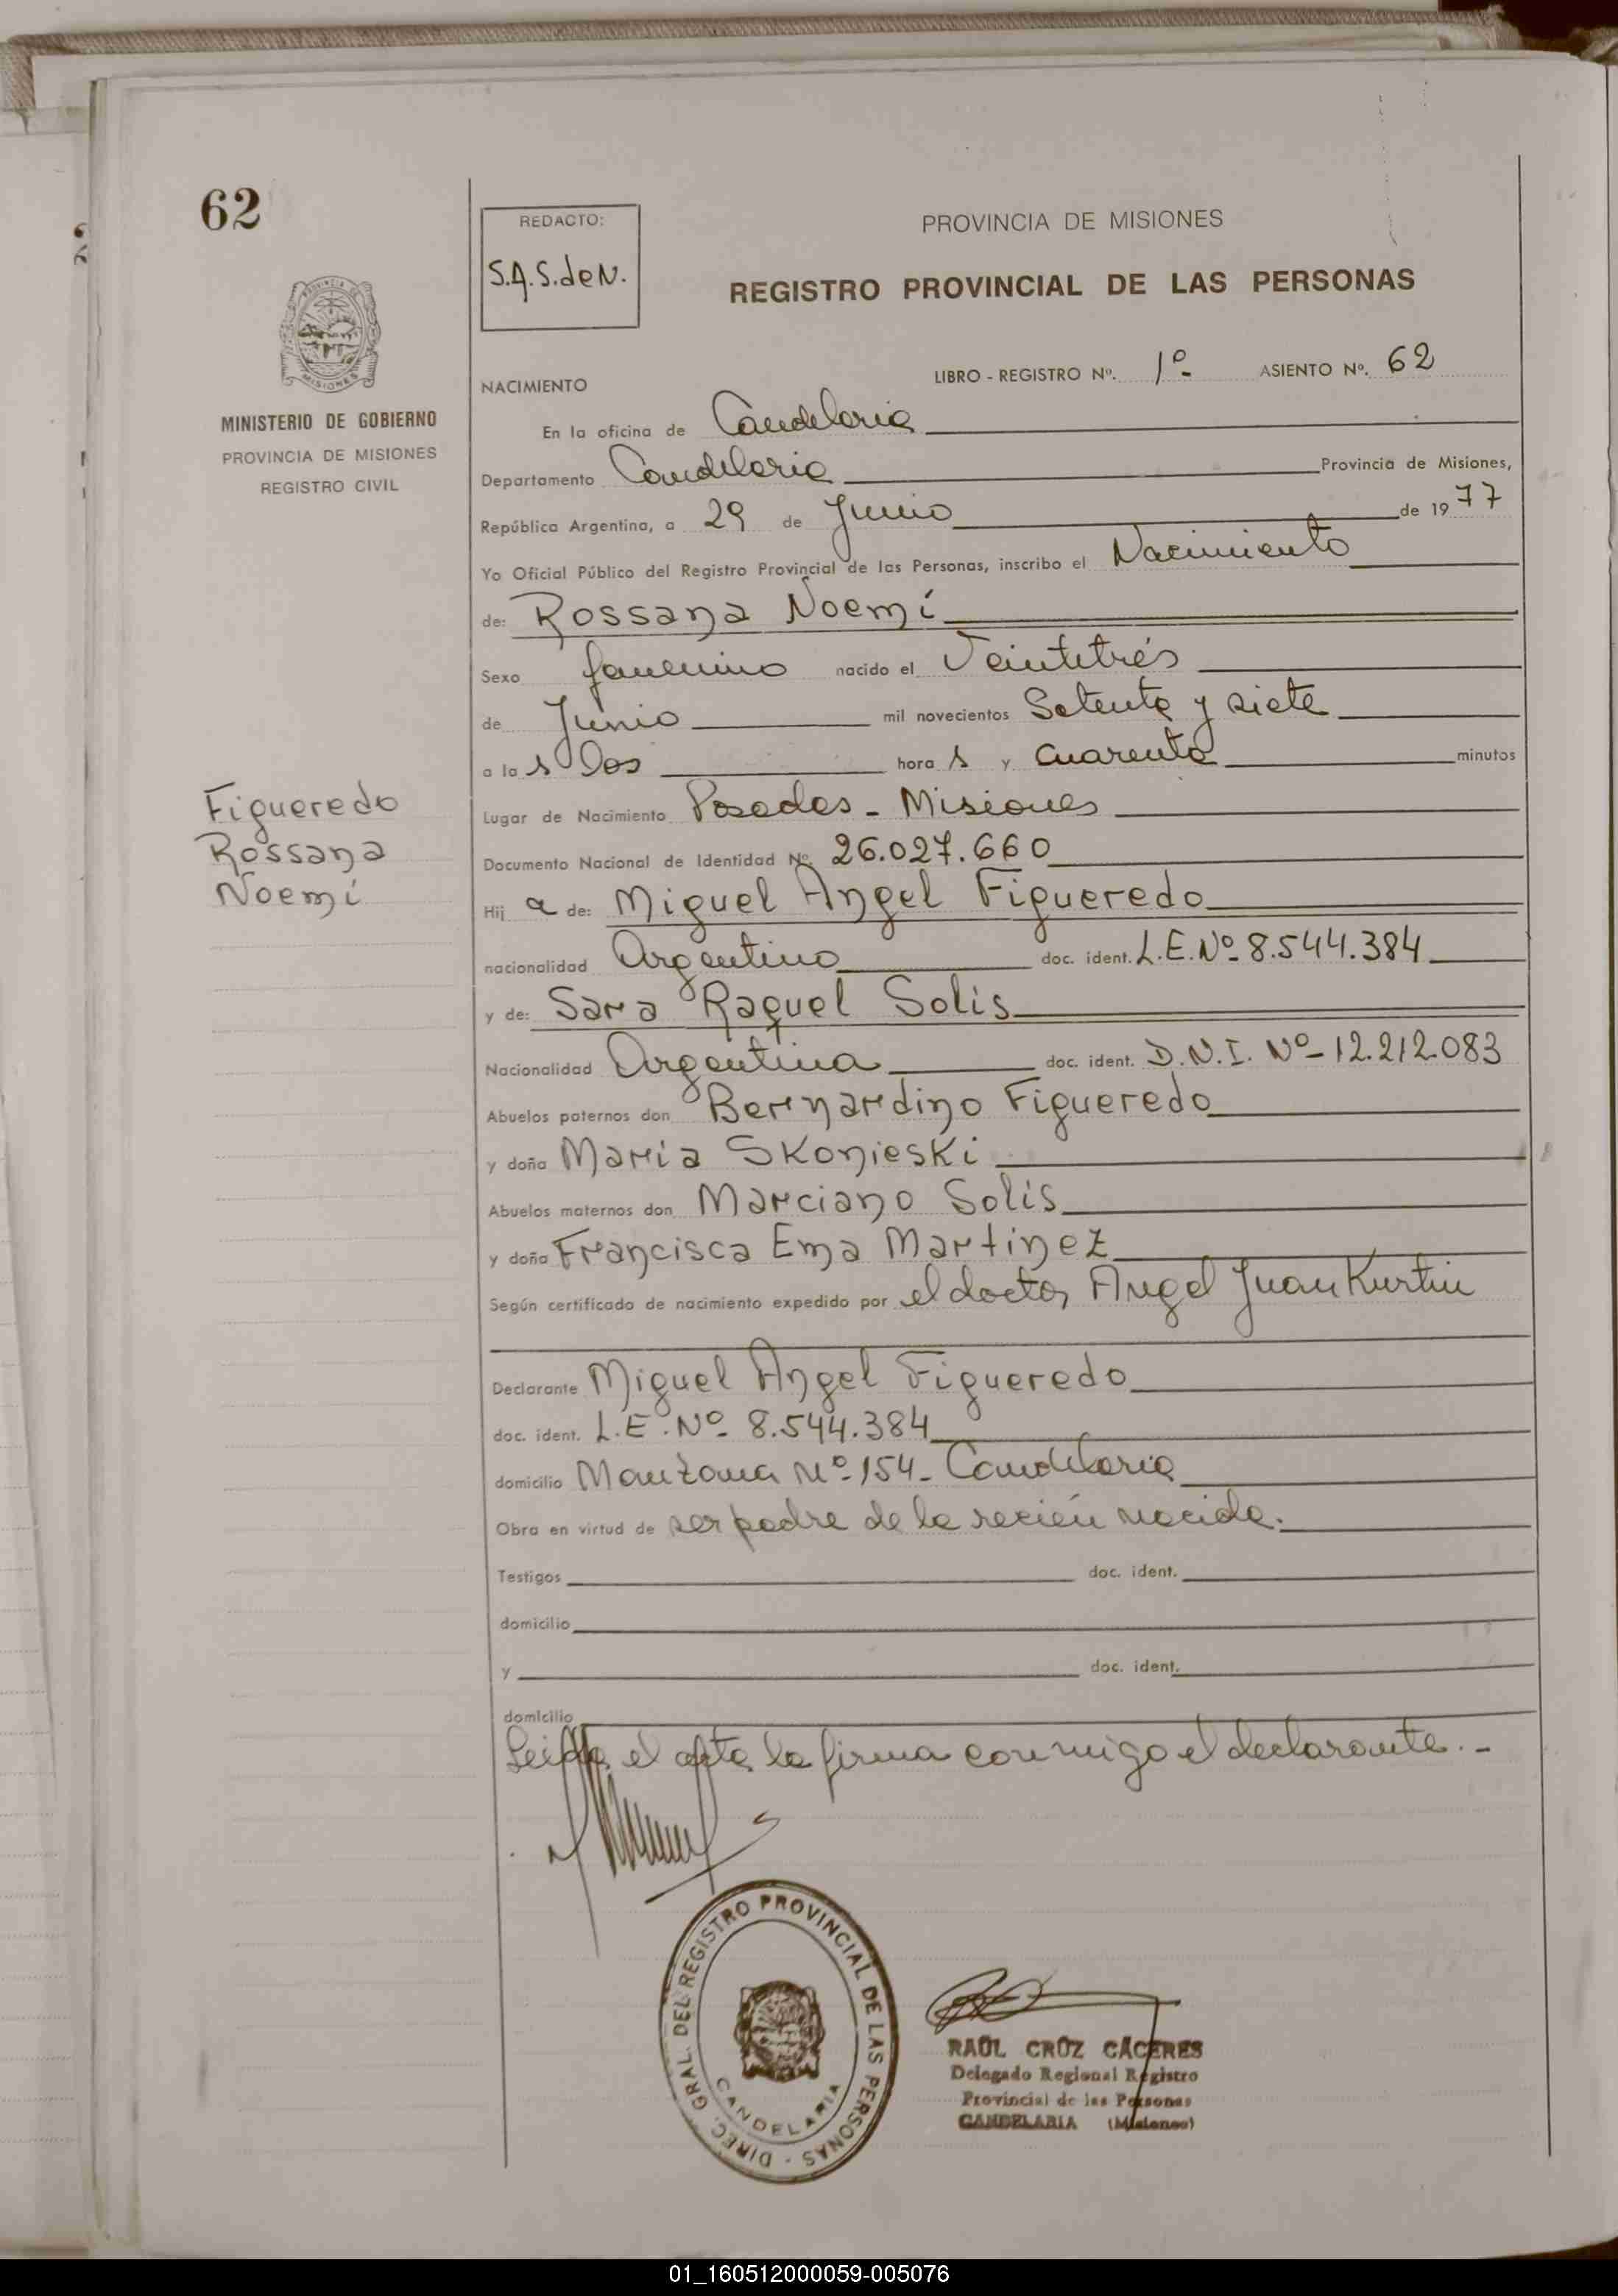 62
REDACTO:
S.A.S.deN.
PROVINCIA DE MISIONES
REGISTRO PROVINCIAL DE LAS PERSONAS
PROVINCIA DE
MISIONES
MINISTERIO DE GOBIERNO
PROVINCIA DE MISIONES
REGISTRO CIVIL
NACIMIENTO
LIBRO - REGISTRO Nº. 1º- ASIENTO Nº. 62
En la oficina de Candelaria
Departamento Candelaria Provincia de Misiones,
República Argentina, a 29 de Junio de 1977
Yo Oficial Público del Registro Provincial de las Personas, inscribo el Nacimiento
de: Rossana Noemí
Sexo femenino nacido el Veintitrés
de Junio mil novecientos Setenta y siete
a las dos horas y cuarenta minutos
Figueredo
Rossana
Noemí
Lugar de Nacimiento Posadas - Misiones
Documento Nacional de Identidad Nº. 26.027.660
Hija de: Miguel Angel Figueredo
nacionalidad Argentino doc. ident. L.E.Nº- 8.544.384
y de: Sara Raquel Solis
Nacionalidad Argentina doc. ident. D.N.I. Nº- 12.212.083
Abuelos paternos don Bernardino Figueredo
y doña Maria Skonieski
Abuelos maternos don Marciano Solis
y doña Francisca Ema Martinez
Según certificado de nacimiento expedido por el doctor Angel Juan Kurtin
Declarante Miguel Angel Figueredo
doc. ident. L.E. Nº- 8.544.384
domicilio Manzana Nº-154- Candelaria
Obra en virtud de ser padre de la recién nacida.
Testigos doc. ident.
domicilio
y doc. ident.
domicilio
Leida el acta la firma conmigo el declarante.-
DIREC. GRAL. DEL REGISTRO PROVINCIAL DE LAS PERSONAS -
CANDELARIA
RAUL CRUZ CACERES
Delegado Regional Registro
Provincial de las Personas
CANDELARIA (Misiones)
01_160512000059-005076